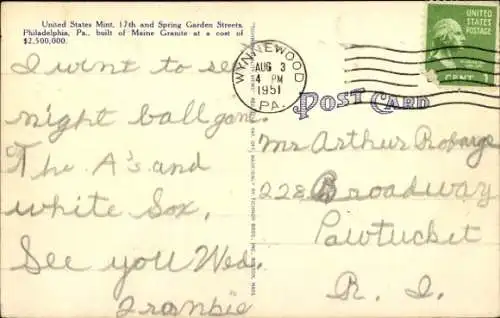 United States Mint, 17th and Spring Garden Streets,
Philadelphia, Pa., built of Maine Granite at a cost of
$2,500,000.
I went to see
night ball game.
The A's and
White Sox.
See you Wed.
Frankie
WYNNEWOOD
AUG 3
4 PM
1951
PA.
POST CARD
UNITED
STATES
POSTAGE
CENT 1
Mr Arthur
228 Broadway
Pawtucket
R. I.